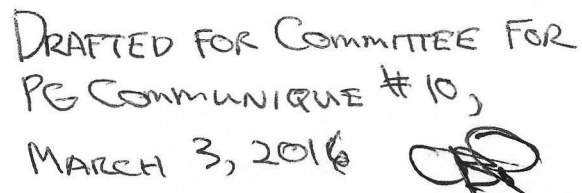 DRAFTED FOR COMMITTEE FOR
PG COMMUNIQUE #10,
MARCH 3, 2016